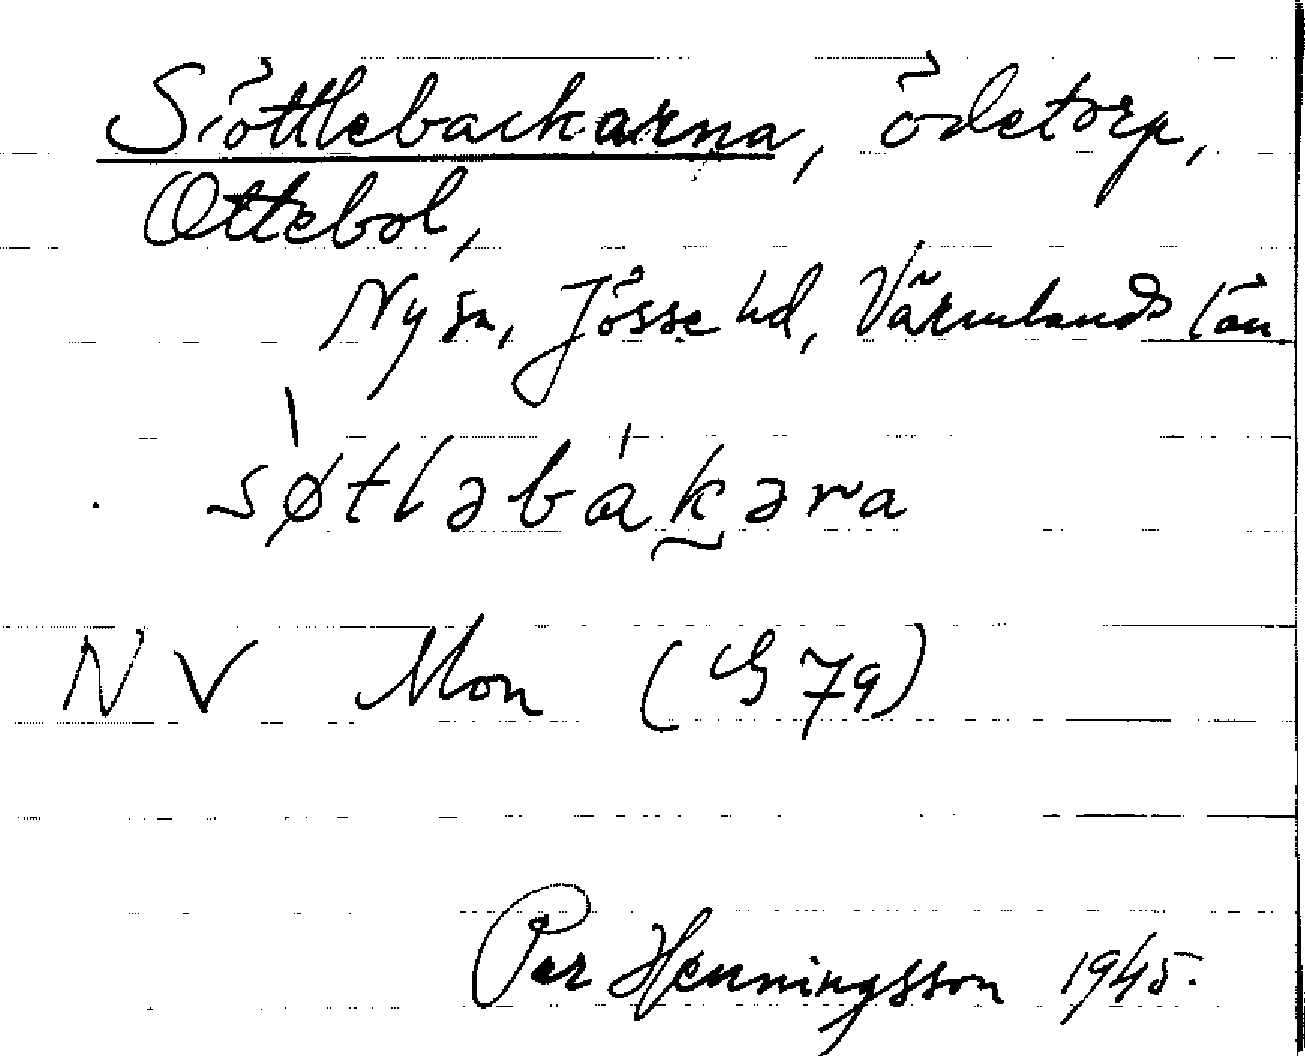 Söttlebackarna, ödetorp,
Ottebol,
Ny sn, Jösse hd, Värmlands län
sø̀tləbákəra
NV Mon (G 79)
Per Henningsson 1945.